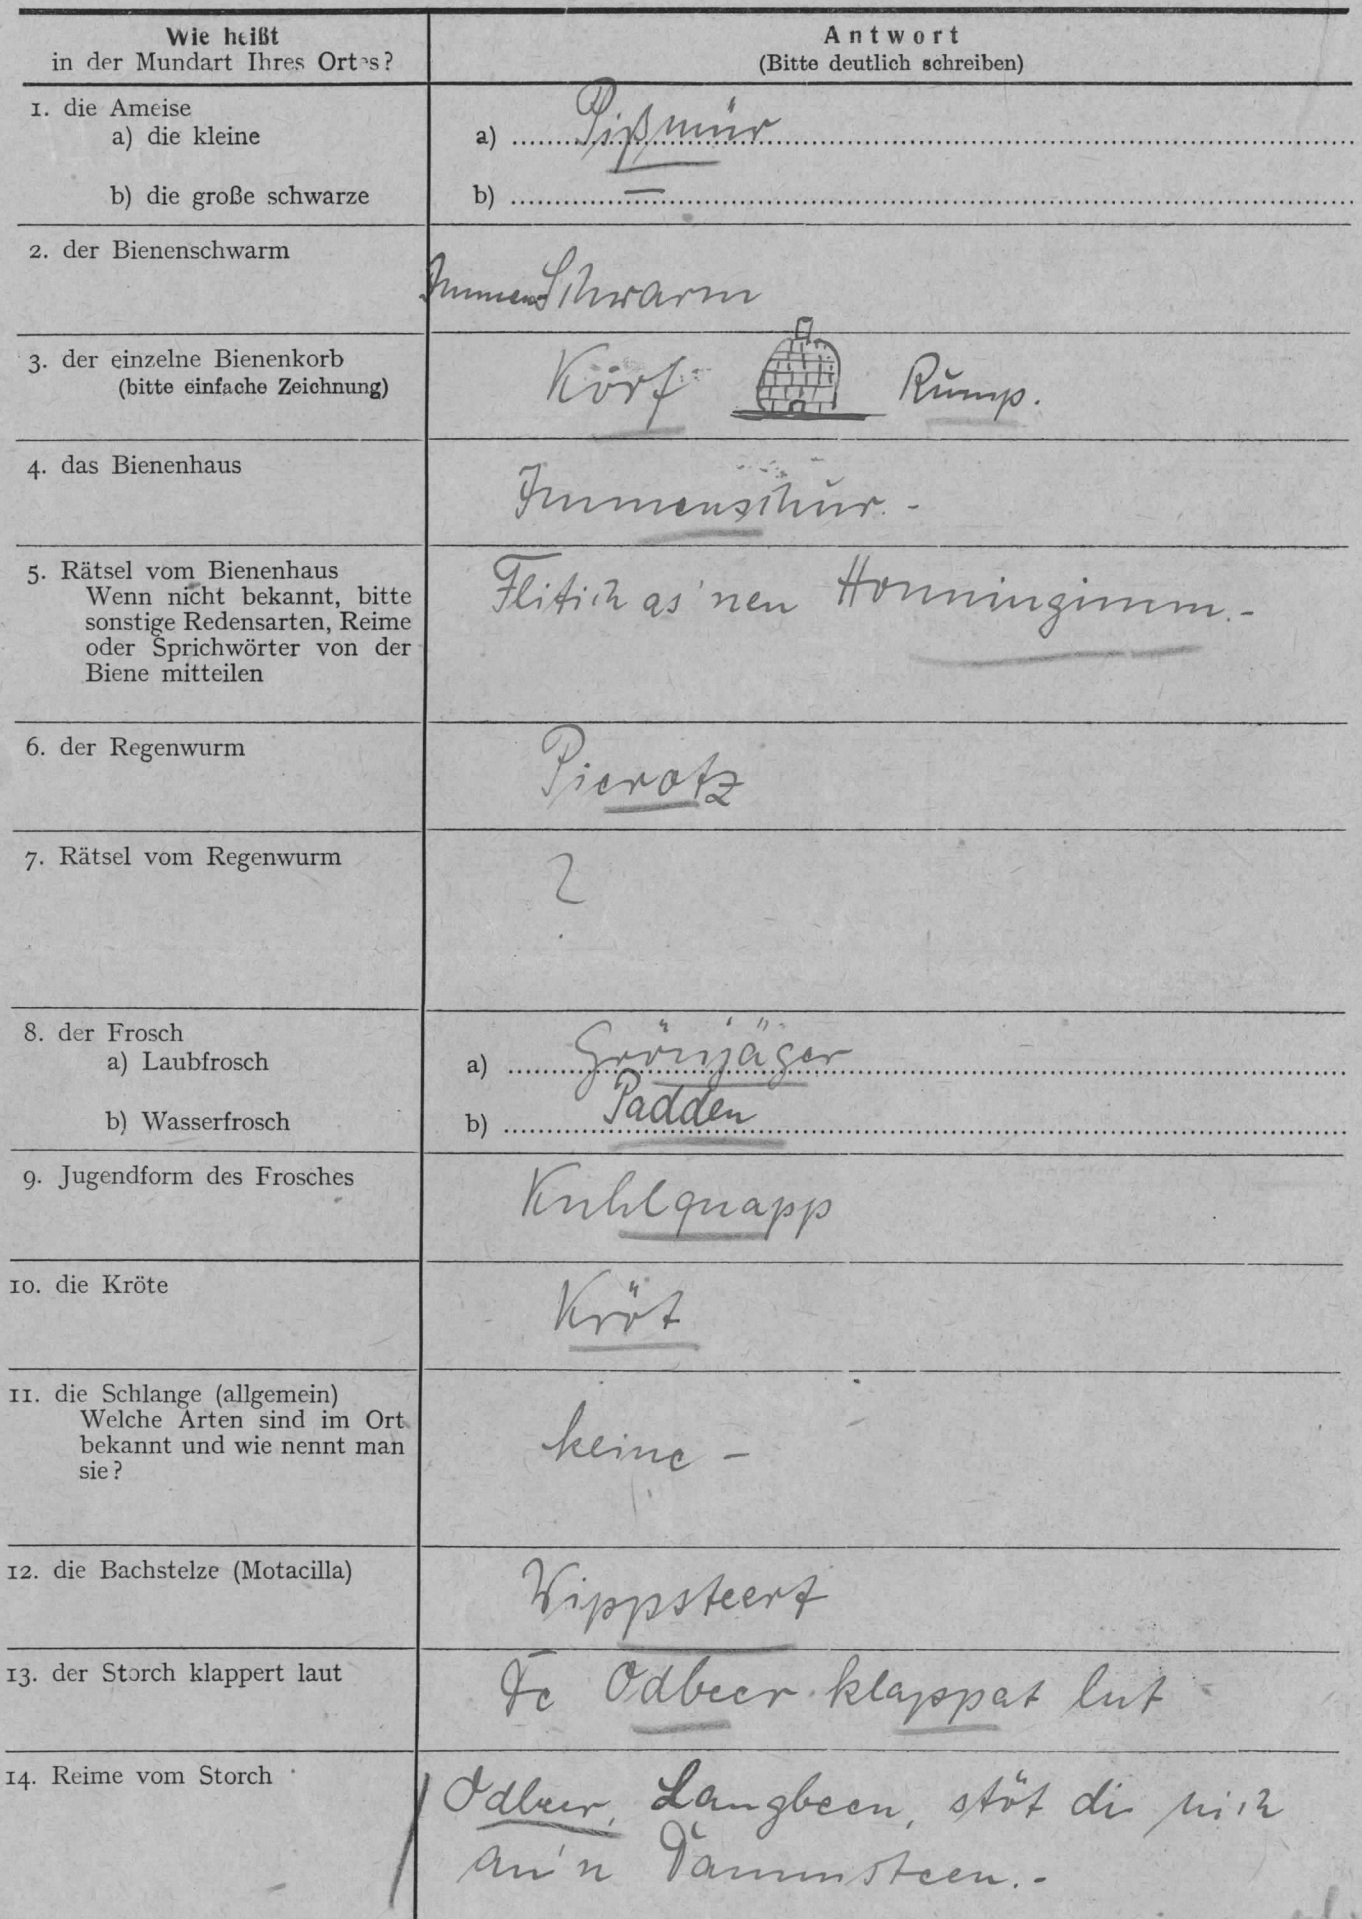 Wie heißt
in der Mundart Ihres Ortes?
Antwort
(Bitte deutlich schreiben)
1. die Ameise
a) die kleine
a) Pißmür
b) die große schwarze
b) —
2. der Bienenschwarm
Immen Schwarm
3. der einzelne Bienenkorb
(bitte einfache Zeichnung)
Körf Rump.
4. das Bienenhaus
Immenschur. -
5. Rätsel vom Bienenhaus
Wenn nicht bekannt, bitte
sonstige Redensarten, Reime
oder Sprichwörter von der
Biene mitteilen
Flitich as'nen Honningimm. -
6. der Regenwurm
Pieratz
7. Rätsel vom Regenwurm
?
8. der Frosch
a) Laubfrosch
a) Grönjäger
b) Wasserfrosch
b) Padden
9. Jugendform des Frosches
Kuhlquapp
10. die Kröte
Kröt
11. die Schlange (allgemein)
Welche Arten sind im Ort
bekannt und wie nennt man
sie?
keine -
12. die Bachstelze (Motacilla)
Wippsteert
13. der Storch klappert laut
De Odbeer klappat lut
14. Reime vom Storch
Odbeer, Langbeen, stöt di nich
an'n Dammsteen. -